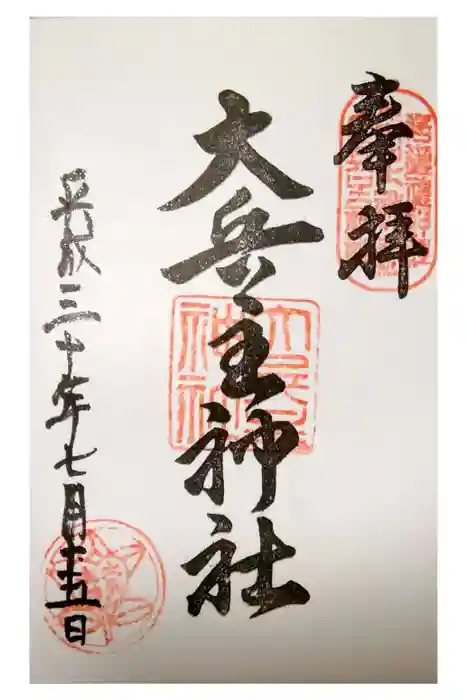 奉拝
大兵主神社
平成三十年七月十五日